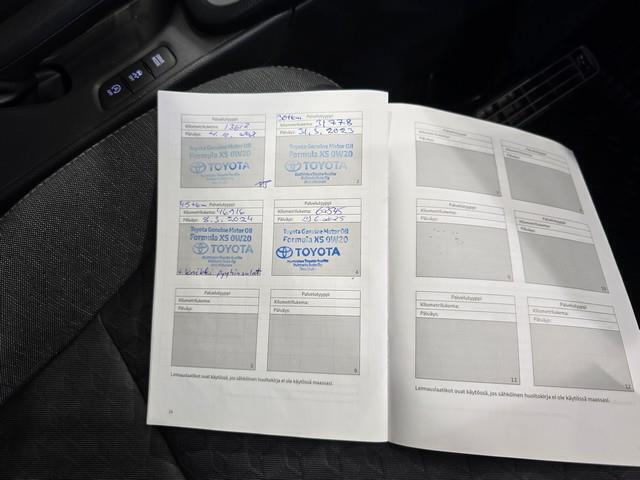 Palvelutyyppi
Kilometrilukema: 13612
Päiväys:
Toyota Genuine Motor Oil
Formula XS 0W20
TOYOTA
30tkm Palvelutyyppi
Kilometrilukema: 31778
Päiväys: 31.3.2023
Toyota Genuine Motor Oil
Formula XS 0W20
TOYOTA
2
45tkm Palvelutyyppi
Kilometrilukema: 46416
Päiväys: 8.3.2024
Toyota Genuine Motor Oil
Formula XS 0W20
TOYOTA
Palvelutyyppi
Kilometrilukema: 60545
Päiväys:
Toyota Genuine Motor Oil
Formula XS 0W20
TOYOTA
4
Palvelutyyppi
Kilometrilukema:
Päiväys:
5
Palvelutyyppi
Kilometrilukema:
Päiväys:
6
Leimauslaatikot ovat käytössä, jos sähköinen huoltokirja ei ole käytössä maassasi.
Palvelutyyppi
Kilometrilukema:
Päiväys:
Palvelutyyppi
Kilometrilukema:
Päiväys:
Palvelutyyppi
Kilometrilukema:
Päiväys:
9
Palvelutyyppi
Kilometrilukema:
Päiväys:
10
Palvelutyyppi
Kilometrilukema:
Päiväys:
11
Palvelutyyppi
Kilometrilukema:
Päiväys:
12
Leimauslaatikot ovat käytössä, jos sähköinen huoltokirja ei ole käytössä maassasi.